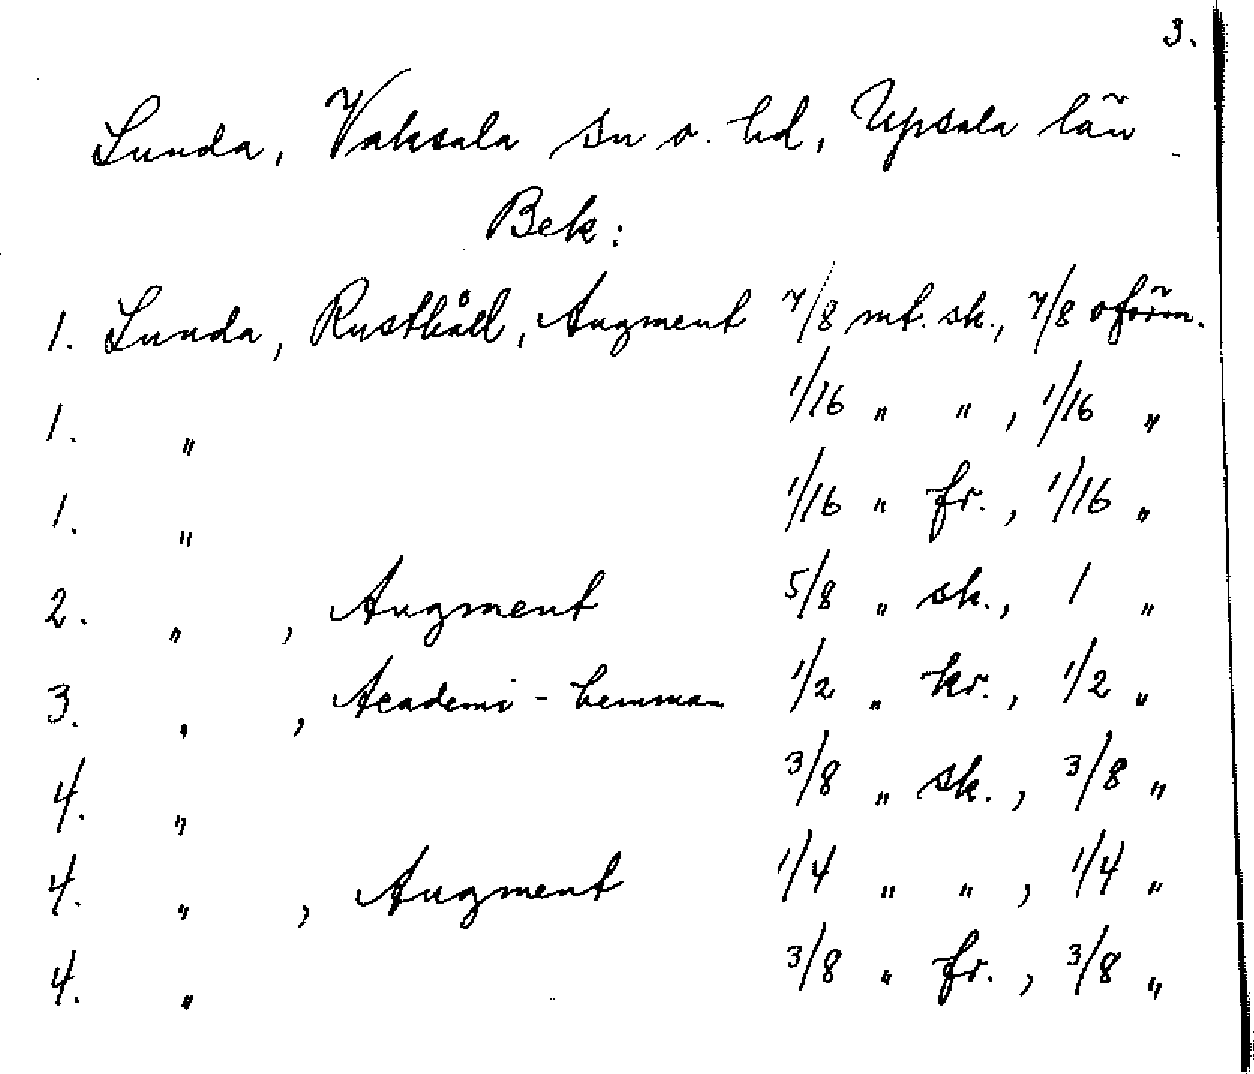 3.
Lunda, Vaksala sn o. hd, Upsala län
Bek:
1. Lunda, Rusthåll, Augment 7/8 mt. sk., 7/8 oförm.
1. " 1/16 " " , 1/16 "
1. " 1/16 " fr. , 1/16 "
2. " , Augment 5/8 " sk., 1 "
3. " , Academi-hemman 1/2 " kr., 1/2 "
4. " 3/8 " sk. , 3/8 "
4. " , Augment 1/4 " " , 1/4 "
4. " 3/8 " fr. , 3/8 "